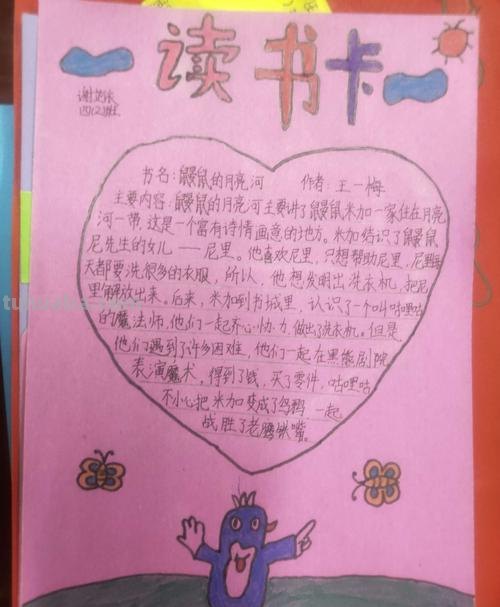 读书卡
四(2)班
书名:鼹鼠的月亮河 作者:王一梅
主要内容:鼹鼠的月亮河主要讲了鼹鼠米加一家住在月亮
河一带,这是一个富有诗情画意的地方。米加结识了鼹鼠
尼先生的女儿——尼里。他喜欢尼里,只想帮助尼里,尼里每
天都要洗很多的衣服,所以,他想发明出洗衣机,把尼
里解放出来。后来,米加到书城里,认识了一个叫咕哩咕
的魔法师,他们一起齐心协力,做出了洗衣机。但是
他们遇到了许多困难,他们一起在黑猫剧院
表演魔术,得到了钱,买了零件,咕哩咕
不小心把米加变成了乌鸦,一起
战胜了老鹰铁嘴。